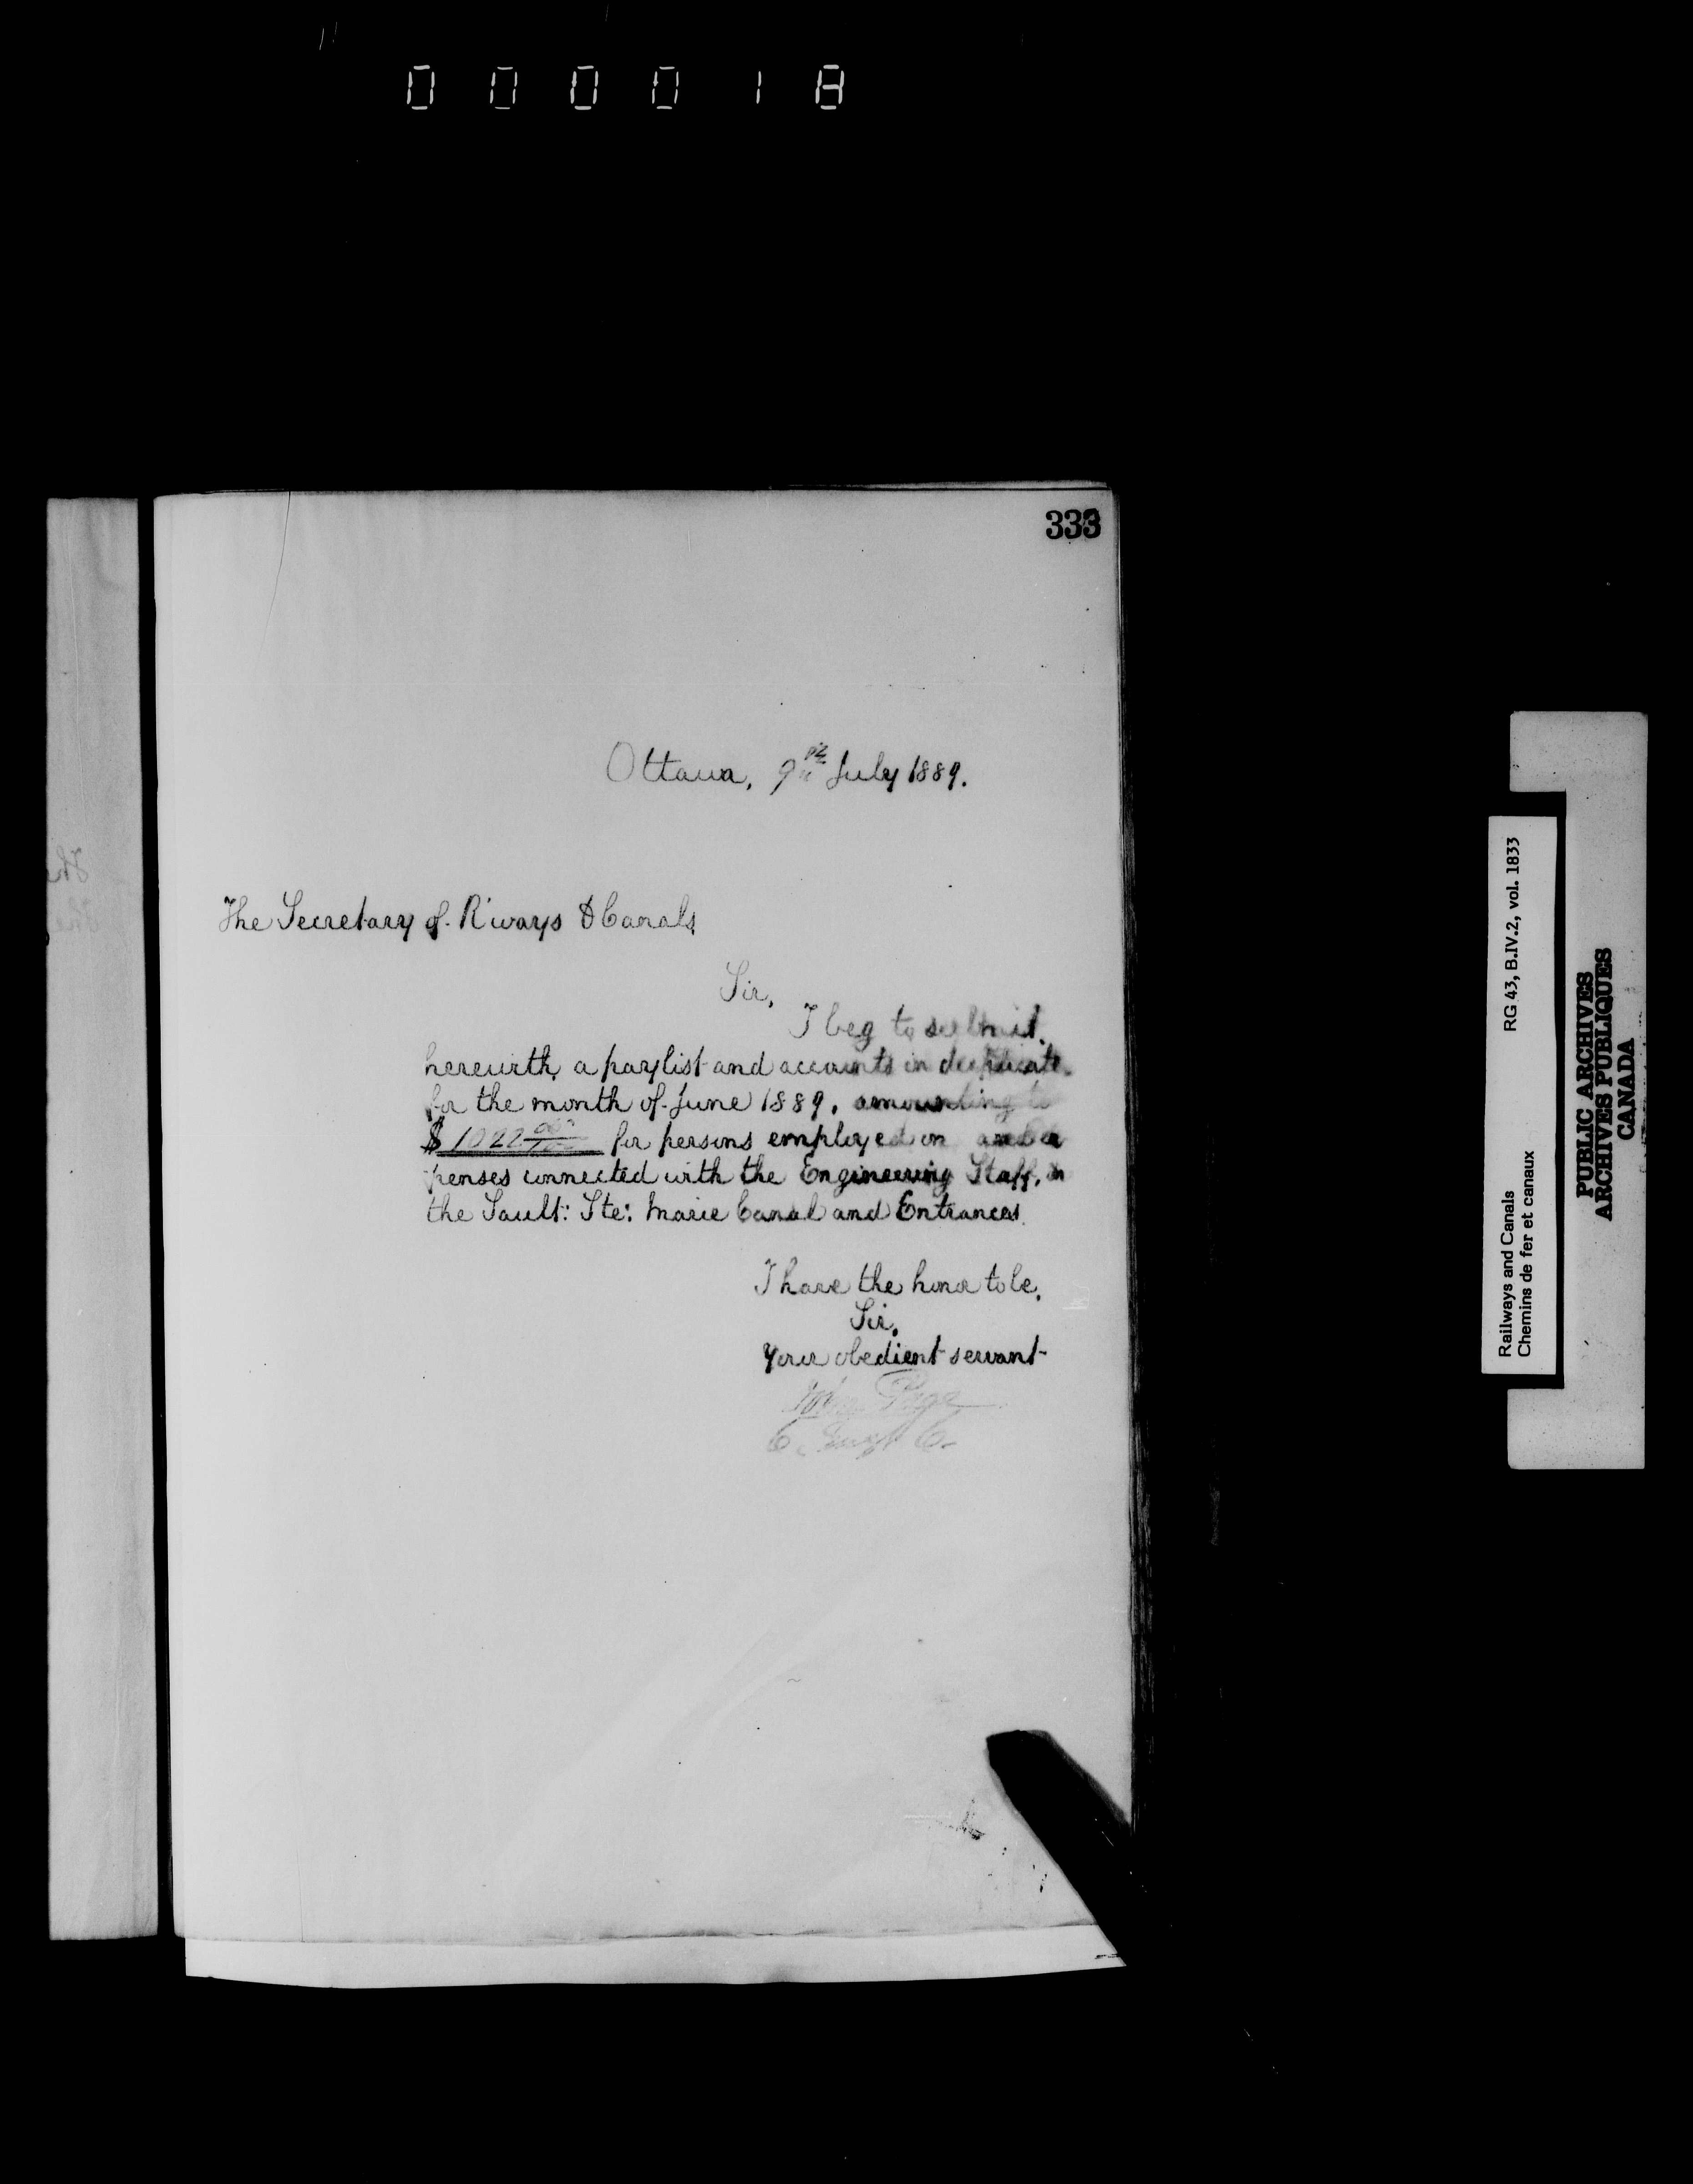 000018
333
Ottawa, 9th July 1889.
The Secretary of R'ways & Canals
Sir,
I beg to submit
herewith, a paylist and accounts in duplicate
for the month of June 1889, amounting to
$1022 for persons employed on and ex
penses connected with the Engineering Staff, on
the Sault: Ste: Marie Canal and Entrances.
I have the honor to be,
Sir,
Your obedient servant
John Page
C. Engr C.
Railways and Canals RG 43, B.IV.2, vol. 1833
Chemins de fer et canaux
PUBLIC ARCHIVES
ARCHIVES PUBLIQUES
CANADA